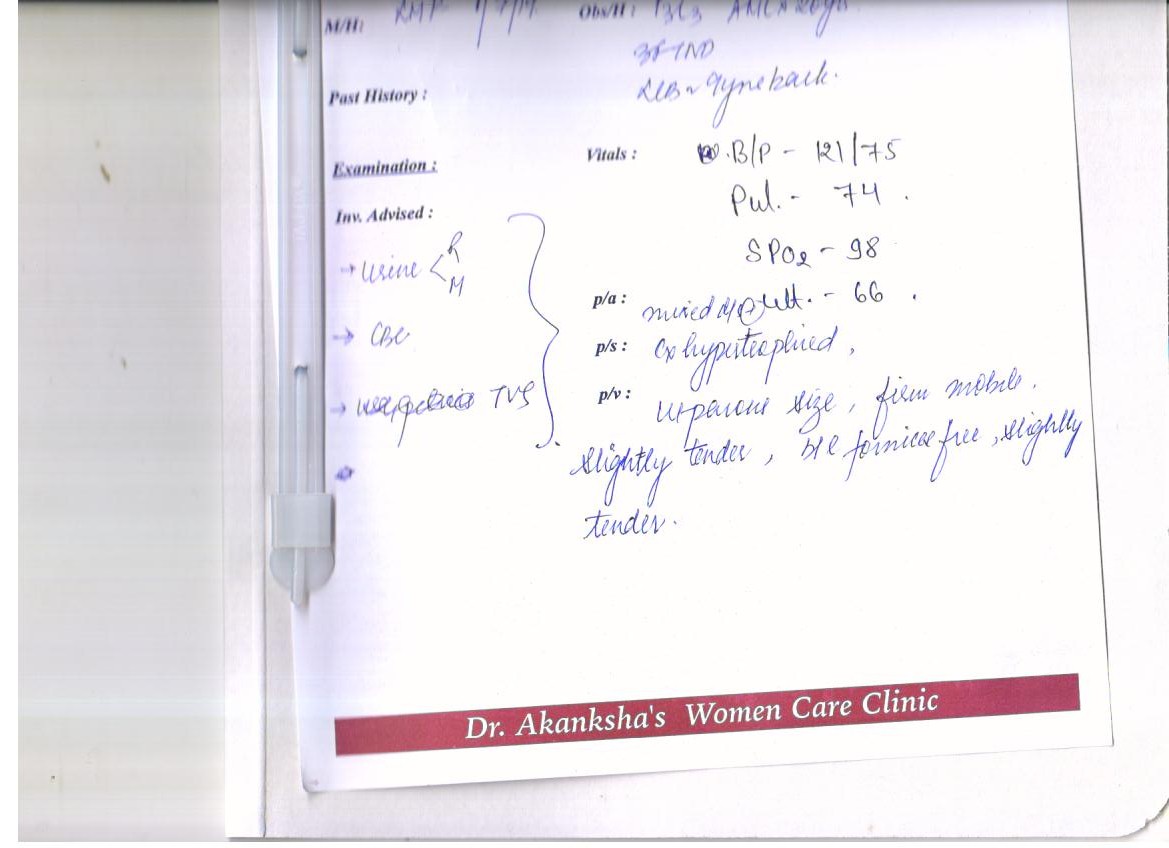 M/H: LMP 1/7/19 Obs/H:
3FTND
LCB ~ 9yrs back.
Past History :
Examination : Vitals : B/P - 121/75
Pul. - 74 .
Inv. Advised :
SPO2 - 98
→ Urine < R
M
p/a : wt. - 66 .
→ CBC p/s : Cx hypertrophied ,
→ TVS p/v : ut parous size , firm mobile .
slightly tender , B/L fornices free , slightly
tender .
Dr. Akanksha's Women Care Clinic